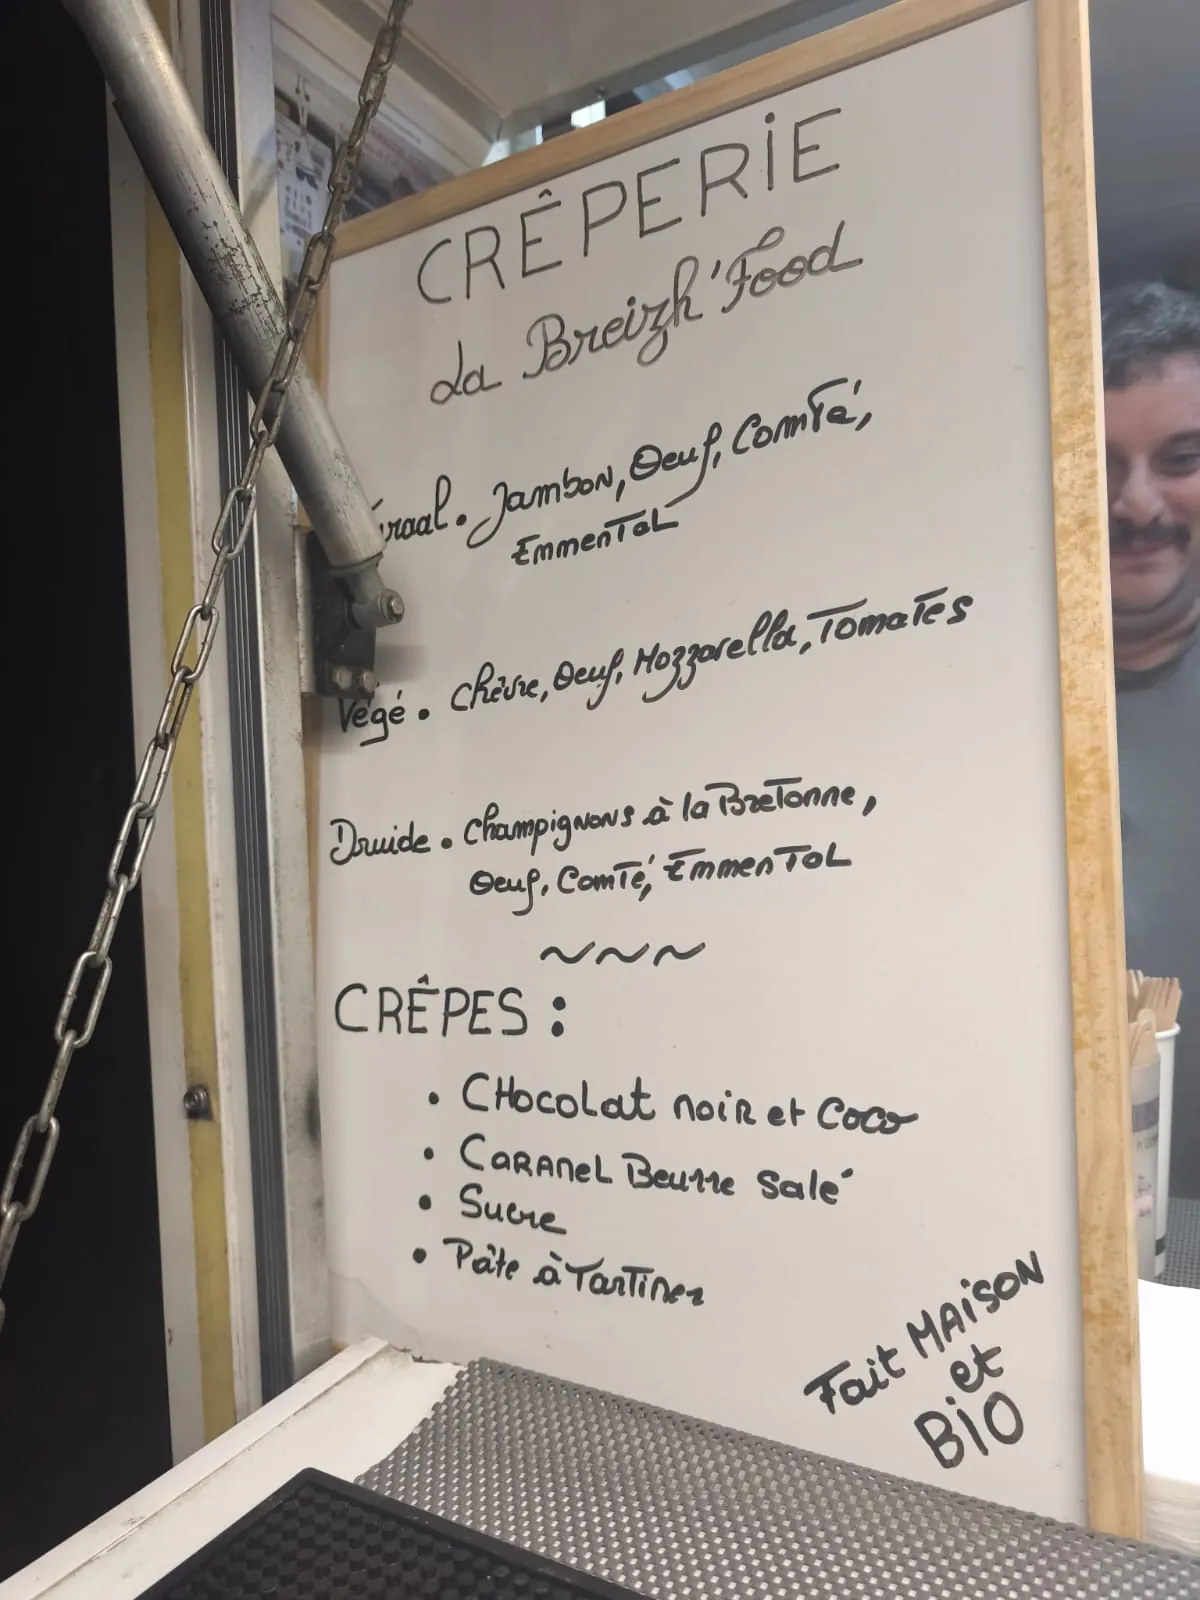 CRÊPERIE
La Breizh'Food
Jambon, Oeuf, Comté,
EmmenTaL
Végé. Chèvre, Oeuf, Mozzarella, Tomates
Druide. Champignons à la Bretonne,
Oeuf, Comté, EmmenTaL
~~~
CRÊPES :
• CHocoLat noiR et Coco
• CaRAMeL Beurre Salé
• Sucre
• Pâte à Tartiner
Fait MAiSON
et
BiO